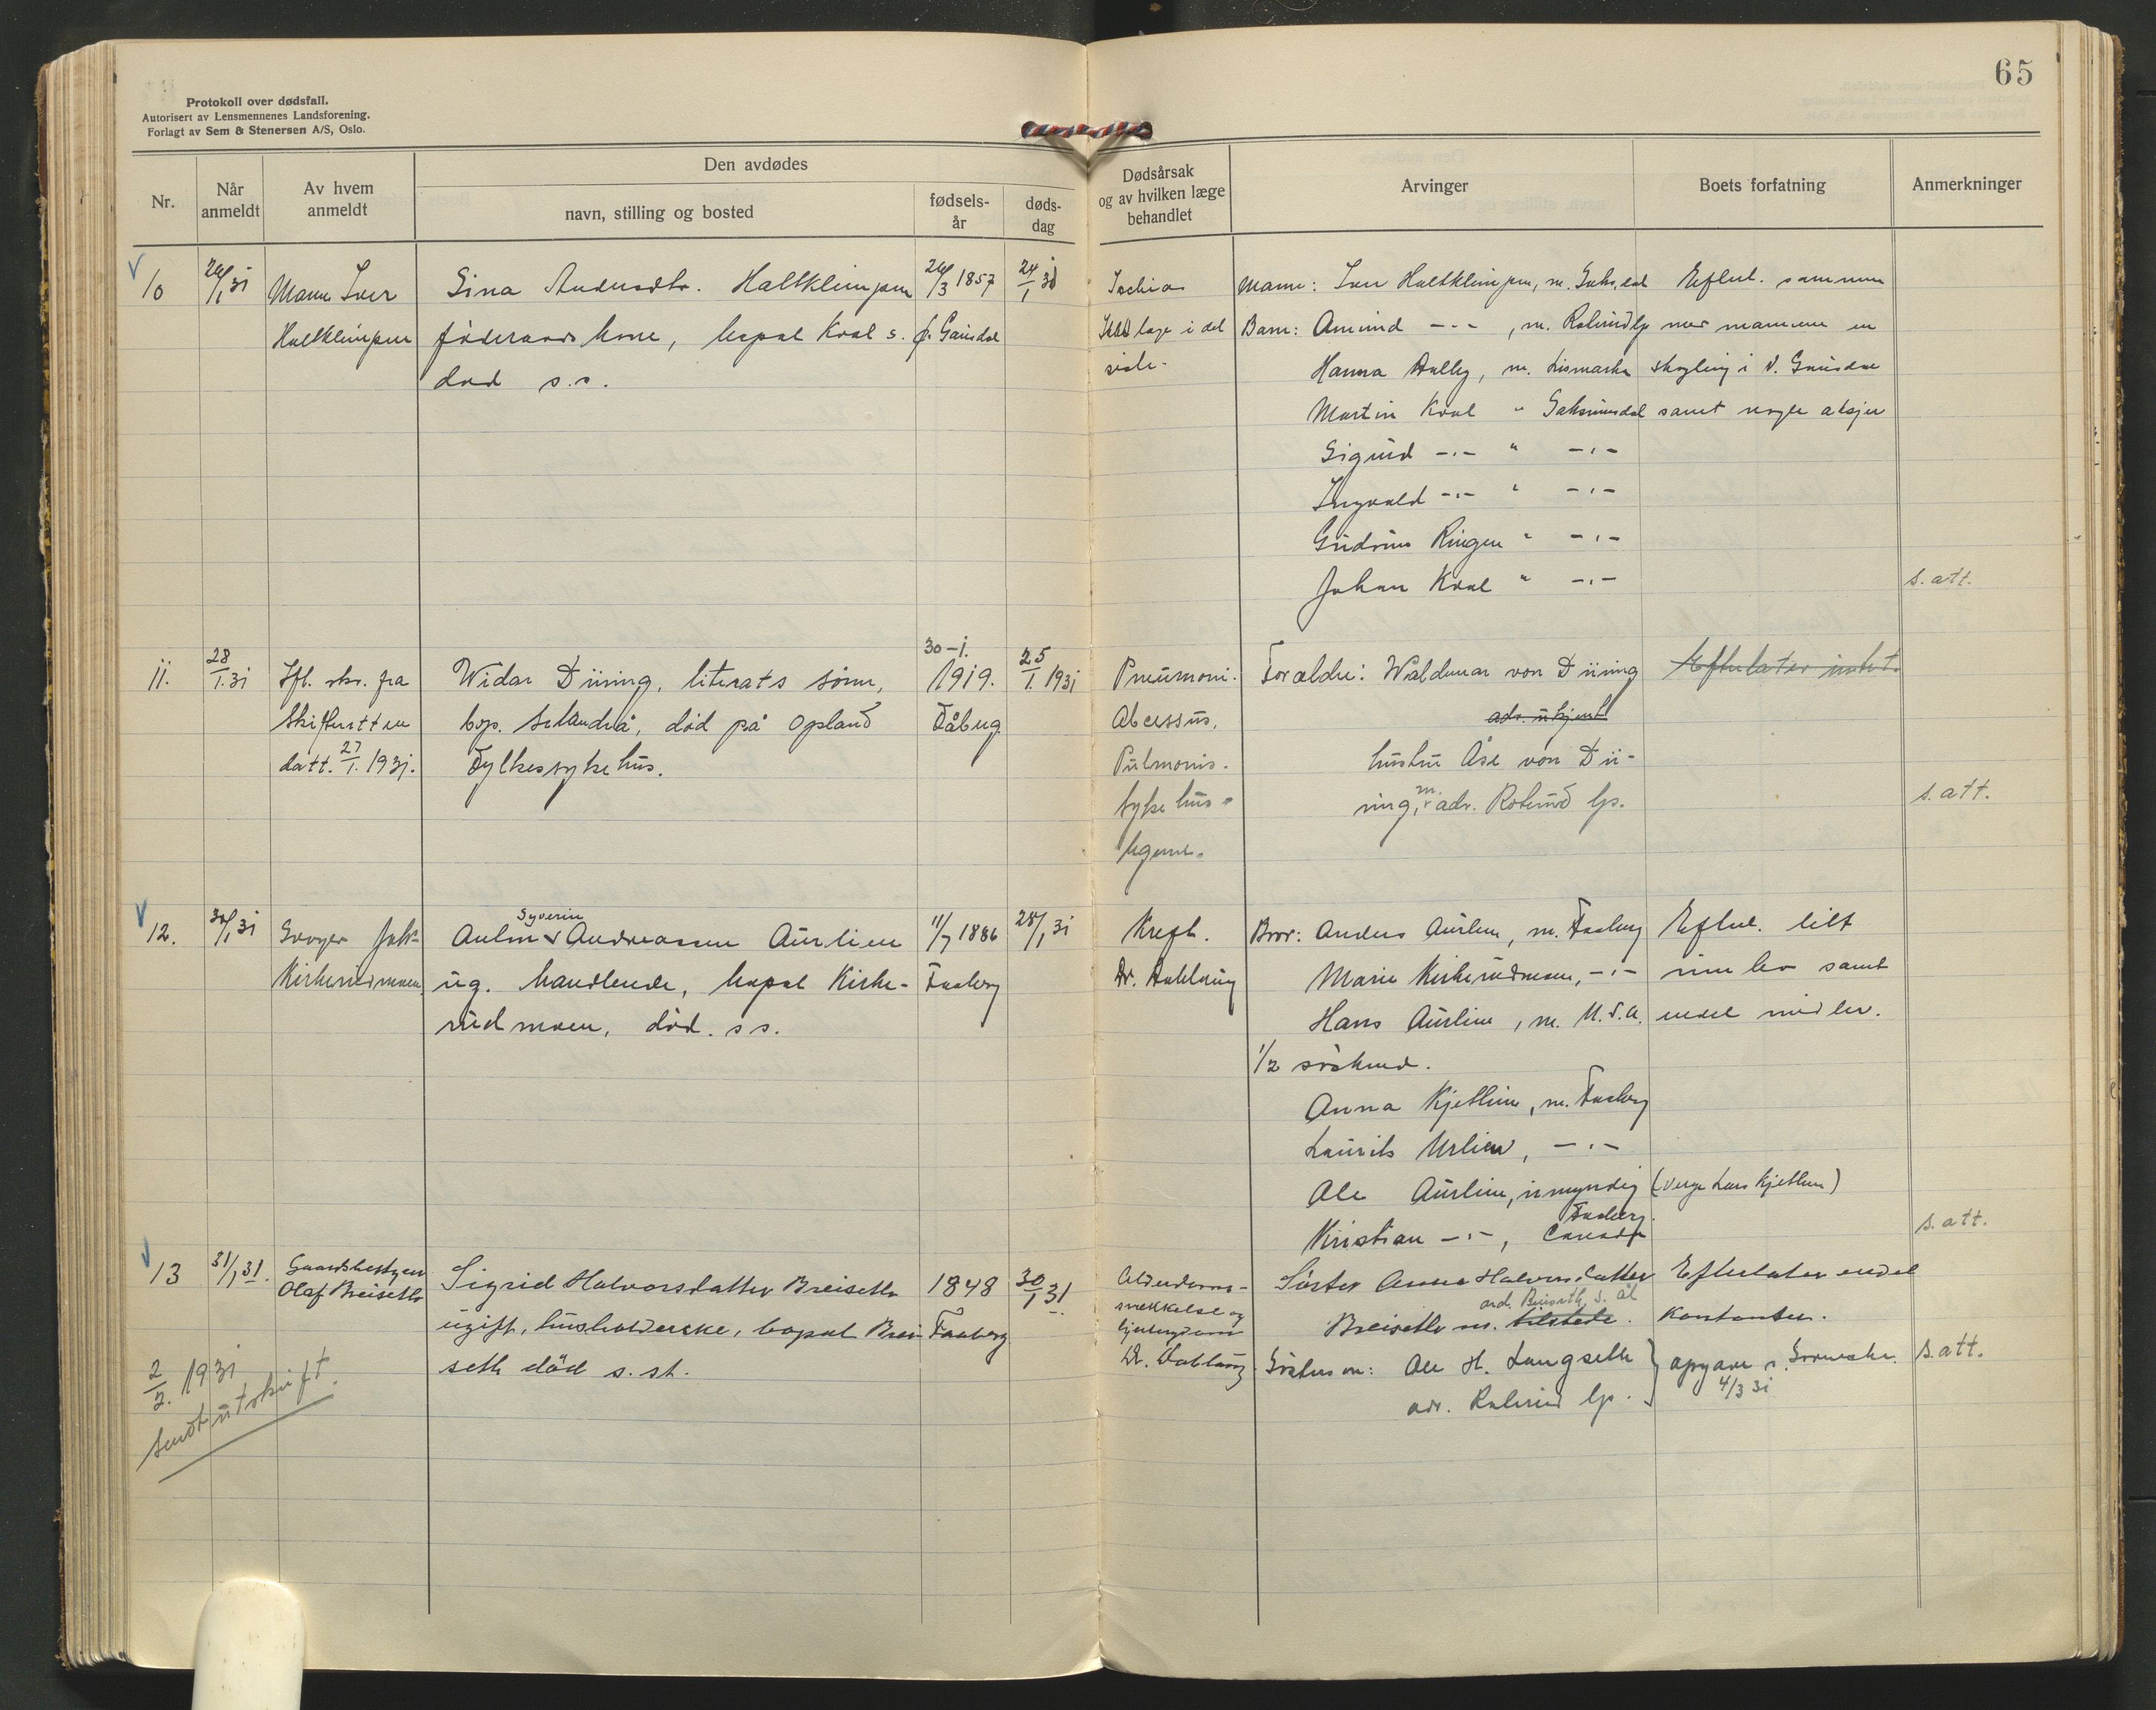 65
Protokoll over dødsfall.
Autorisert av Lensmennenes Landsforening.
Forlagt av Sem & Stenersen A/S, Oslo.
Nr.
Når anmeldt
Av hvem anmeldt
Den avdødes
navn, stilling og bosted
fødsels-år
døds-dag
Dødsårsak og av hvilken læge behandlet
Arvinger
Boets forfatning
Anmerkninger
10
26/1 31
Mann Iver
Holtklimpen
Sina Andersdtr. Holtklimpen
føderaads kone, bopæl Kval s.
død s.s.
26/3 1857
f. Gausdal
24/1 31
Ischias
Ikke læge i det
siste.
Mann: Iver Holtklimpen, m. Saks.dal
Barn: Amund -"-, m. Rolerud lp
Hanna Dalby, m. Lismarka
Martin Kval " Saksumdal
Sigurd -"- " -"-
Ingvald -"- " -"-
Gudrun Ringen " -"-
Johan Kval " -"-
Efterl. sammen
med mannen en
skyling i V. Gausdal
samt nogle aksjer
s. att.
11.
28/1.31
Ifl. skr. fra
Skifteretten
datt. 27/1. 1931.
Widar Düring, literats sønn,
bop. , død på Opland
Fylkessykehus.
30-1.
1919.
Fåberg
25/1. 1931
Pneumoni.
Abcessus.
Pulmonis.
Sykehus-
legene.
Forældre: Waldemar von Düring
adr. ukjent
hustru Åse von Dü-
ring, m. adr. Rolerud lp.
Efterlater intet.
s. att.
12.
30/1 31
Svoger Joh.
Kirkerudmoen
Syverin
Anton Andreassen Aurlien
ug. handlende, bopæl Kirke-
rudmoen, død. s s.
11/7 1886
Faaberg
28/1 31
Kreft.
Dr. Dahlaug
Bror: Anders Aurlien, m. Faaberg
Marie Kirkerudmoen, -"-
Hans Aurlien, m. U.S.A.
1/2 søskend.
Anna Kjetlien, m. Faaberg
Laurits Urlien, -"-
Ole Aurlien, umyndig (verge Lars Kjetlien)
Faaberg.
Kristian -"-, Canada
Efterl. litt
innbo samt
endel midler.
s. att.
13
31/1 31.
Gaardsbestyrer
Olaf Breiseth
Sigrid Halvorsdatter Breiseth
ugift, husholderske, bopæl Brei
seth död s. st.
1848
Faaberg
30/1 31
Alderdoms-
svekkelse og
hjertesygdom
Dr. Dahlaug.
Søster Anna Halvorsdatter
adr. Breiseth, s. al
Breiseth m. tilstede.
Søsters søn: Ole H. Langseth
adr. Rolerud lp.
Efterlater endel
kontanter.
opgave s.
4/3 31
s. att.
2/2. 1931
Sendt utskrift.